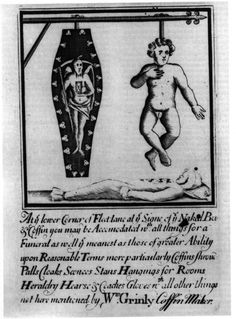 At yᵉ lower Corner of Fleet lane at yᵉ Signe of yᵉ Naked Boy
& Coffin you may be Accomodated wᵗʰ all things for a
Funeral as well yᵉ meanest as those of greater Ability
upon Reasonable Terms more particularly Coffins Shrouds
Palls Cloaks Sconces Stans Hangings for Rooms
Heraldry Hearse & Coaches Gloves wᵗʰ all other things
not here mentioned by Wᵐ Grinly Coffin Maker.